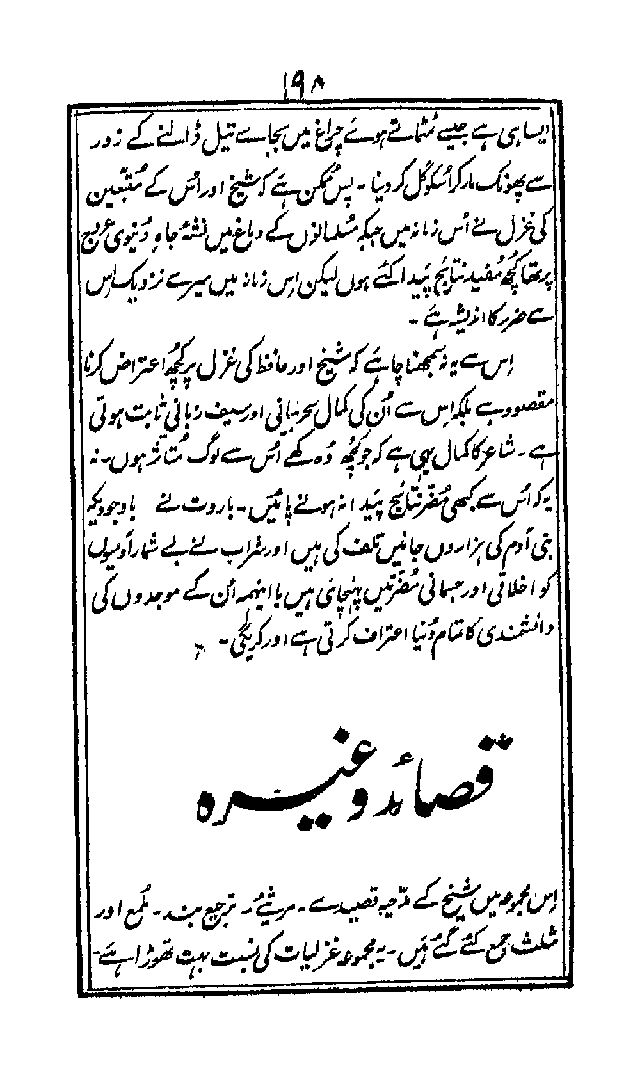 ۱۹۸
ایسا ہی ہے جیسے ٹمٹاتے ہوئے چراغ میں بجاے تیل ڈالنے کے زور
سے پھونک مار کر اُسکو گل کر دینا - پس ممکن ہے کہ شیخ اور اُس کے متبعین
کی غزل نے اُس زمانہ میں جبکہ مسلمانوں کے دماغ میں نشۂ جاہ دُنیوی عروج
پر تھا کچھ مفید نتایج پیدا کئے ہوں لیکن اِس زمانہ میں میرے نزدیک اِس
سے ضرر کا اندیشہ ہے -
اِس سے یہ نہ سمجھنا چاہئے کہ شیخ اور حافظ کی غزل پر کچھ اعتراض کرنا
مقصود ہے بلکہ اِس سے اُن کی کمال سحر بیانی اور سیف زبانی ثابت ہوتی
ہے - شاعر کا کمال یہی ہے کہ جو کچھ وُہ کہے اُس سے لوگ متاثر ہوں - نہ
یہ کہ اُس سے کبھی مُضر نتایج پیدا نہ ہونے پائیں - باروت نے باوجودیکہ
بنی آدم کی ہزاروں جانیں تلف کی ہیں اور شراب نے بے شمار آدمیوں
کو اخلاقی اور جسمانی مُضرتیں پہنچائی ہیں با اینہمہ اُن کے موجدوں کی
دانشمندی کا تمام دُنیا اعتراف کرتی ہے اور کریگی -
قصائد وغیرہ
اِس مجموعہ میں شیخ کے مدحیہ قصیدے - مرثئے - ترجیع بند - ملمع اور
مثلث جمع کئے گئے ہیں - یہ مجموعہ غزلیات کی نسبت بہت تھوڑا ہے -